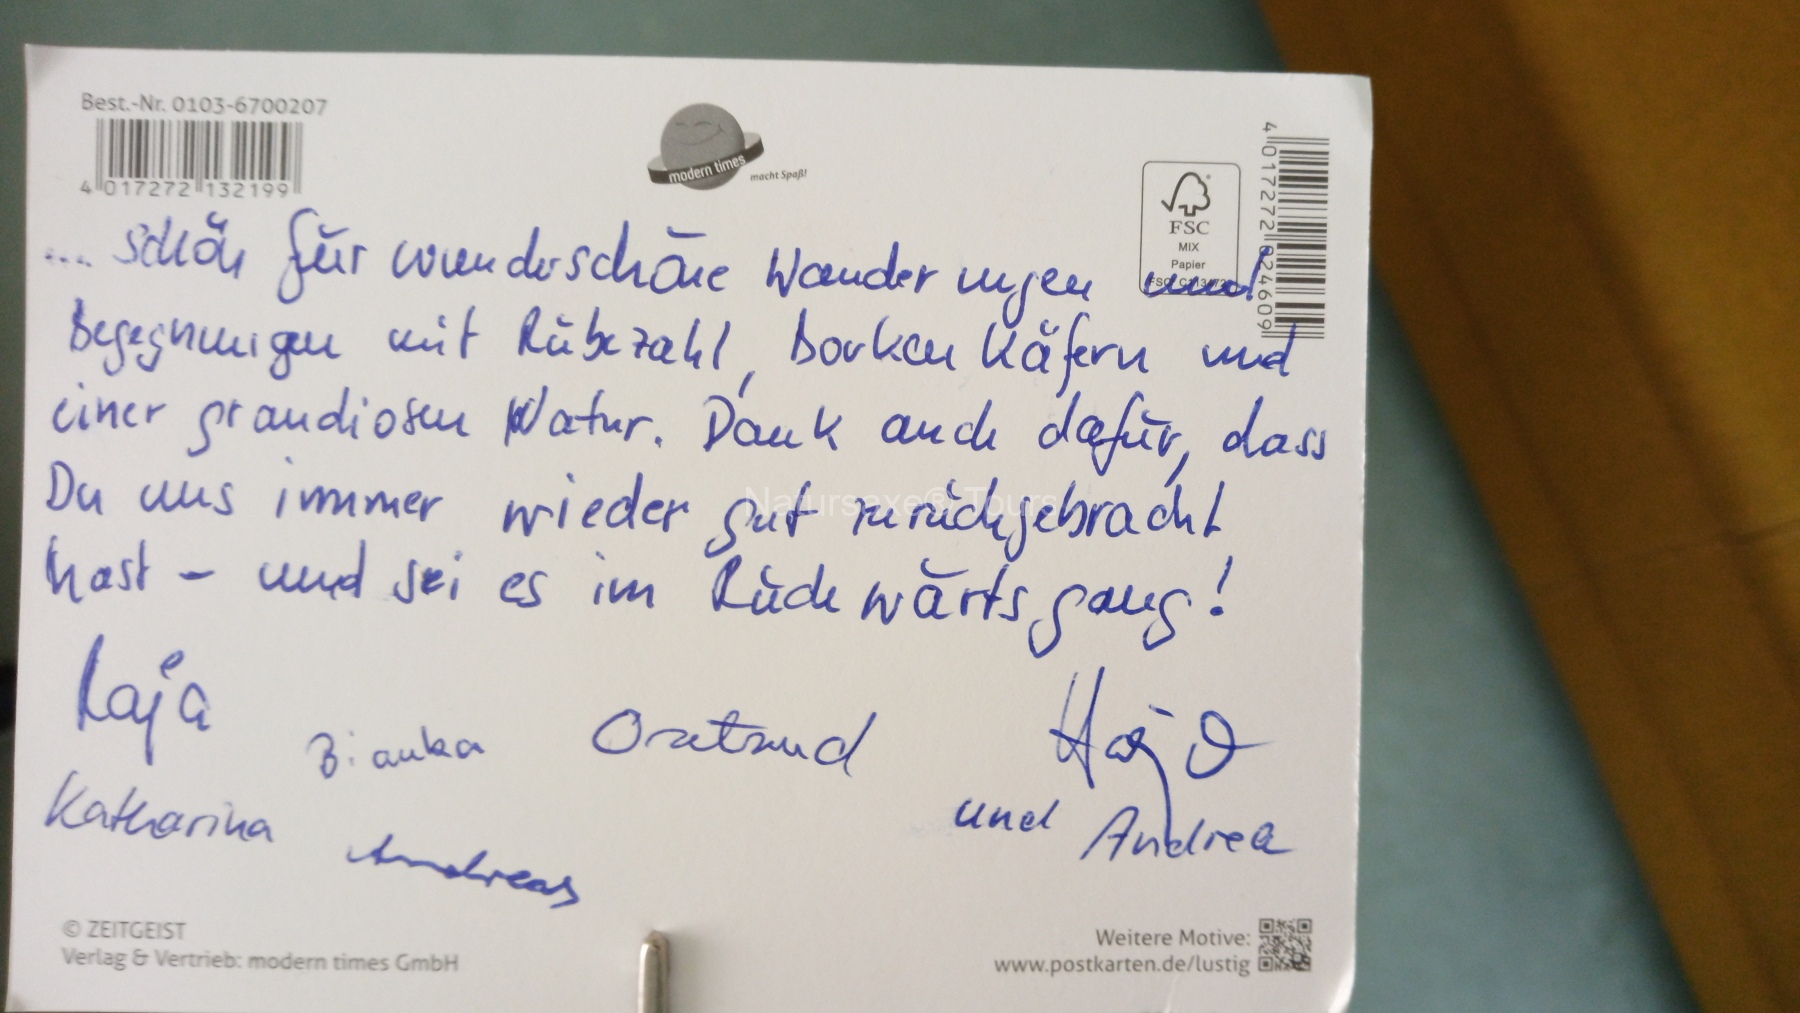 Best.-Nr. 0103-6700207
4 017272 132199
modern times
macht Spaß!
FSC
MIX
Papier
4 017272 024609
... schön für wunderschöne Wanderungen und
Begegnungen mit Rübezahl, Borkenkäfern und
einer grandiosen Natur. Dank auch dafür, dass
Du uns immer wieder gut zurückgebracht
hast – und sei es im Rückwärtsgang!
Natursaxe® Tours
Kaja
Bianka
Hajo
Katharina
und Andrea
Andreas
© ZEITGEIST
Verlag & Vertrieb: modern times GmbH
Weitere Motive:
www.postkarten.de/lustig